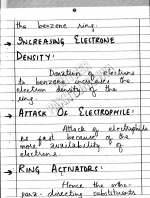 the benzene ring.
→ INCREASING ELECTRONE
DENSITY:
Donation of electrons
to benzene increases the
electron density of the
ring.
→ ATTACK OF ELECTROPHILE:
Attack of electrophile
is fast because of the
more availability of
electrons.
→ RING ACTIVATORS:
Hence the ortho-
para-directing substituents